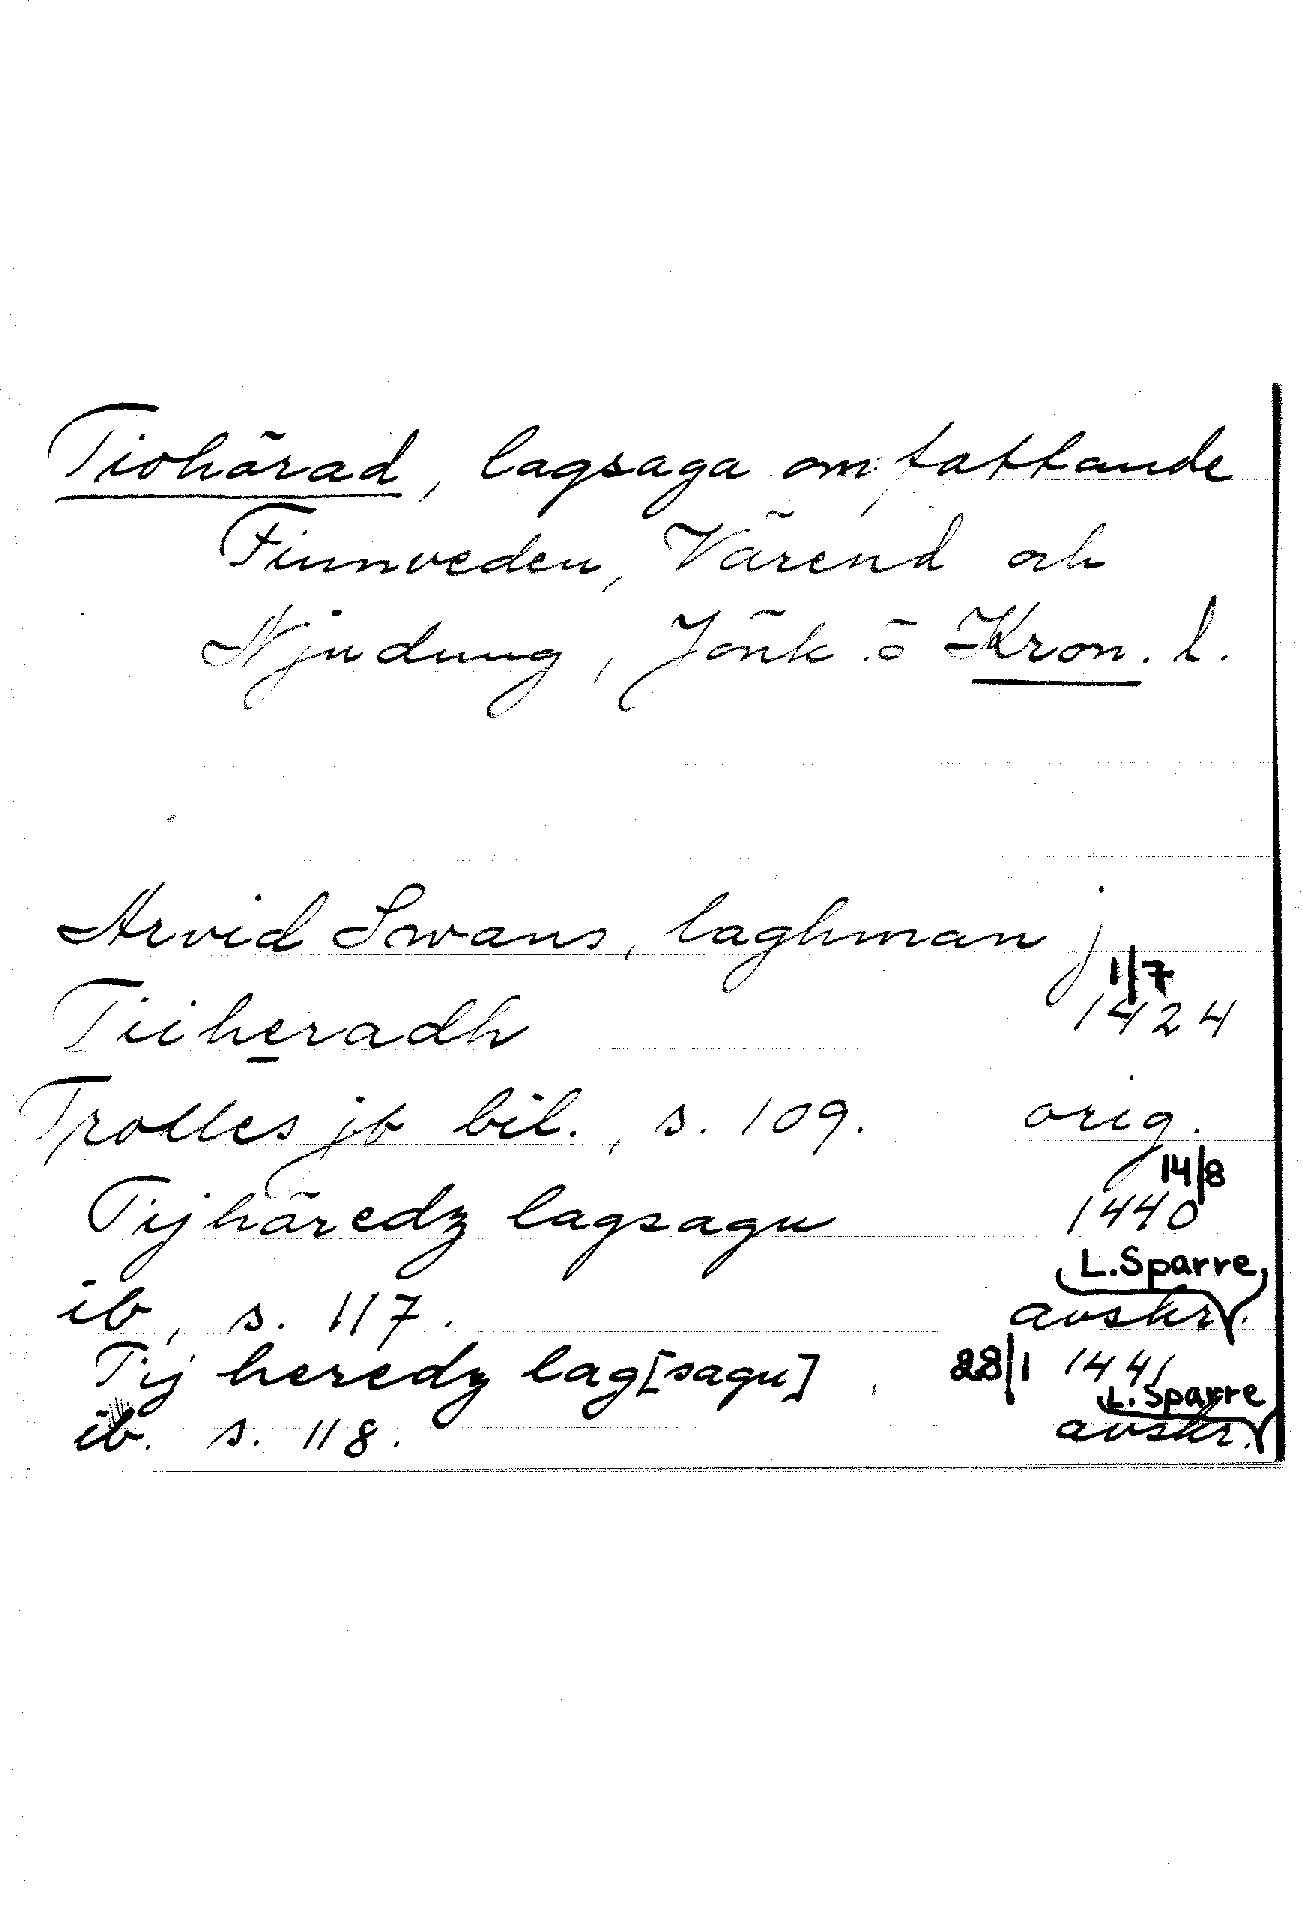 Tiohärad, lagsaga omfattande
Finnveden, Värend och
Njudung, Jönk. o Kron. l.
Arvid Swans, laghman j
Tiiheradh 1/7 1424
Trolles jb bil., s. 109. orig.
Tijhäredz lagsagu 14/8 1440
ib, s. 117. L. Sparre avskr.
Tij heredz lag[sagu], 28/1 1441
ib. s. 118. L. Sparre avskr.